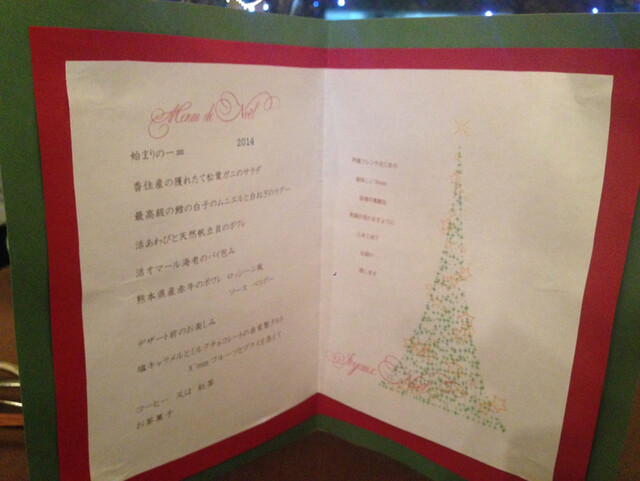 Menu de Noël
2014
始まりの一皿
香住産の獲れたて松葉ガニのサラダ
最高級の鱈の白子のムニエルと白ねぎのラグー
活あわびと天然帆立貝のポワレ
活オマール海老のパイ包み
熊本県産赤牛のポワレ ロッシーニ風
ソース ペリグー
デザート前のお楽しみ
塩キャラメルとミルクチョコレートの自家製タルト
X'mas フルーツとグラスを添えて
コーヒー 又は 紅茶
お茶菓子
Joyeux Noël